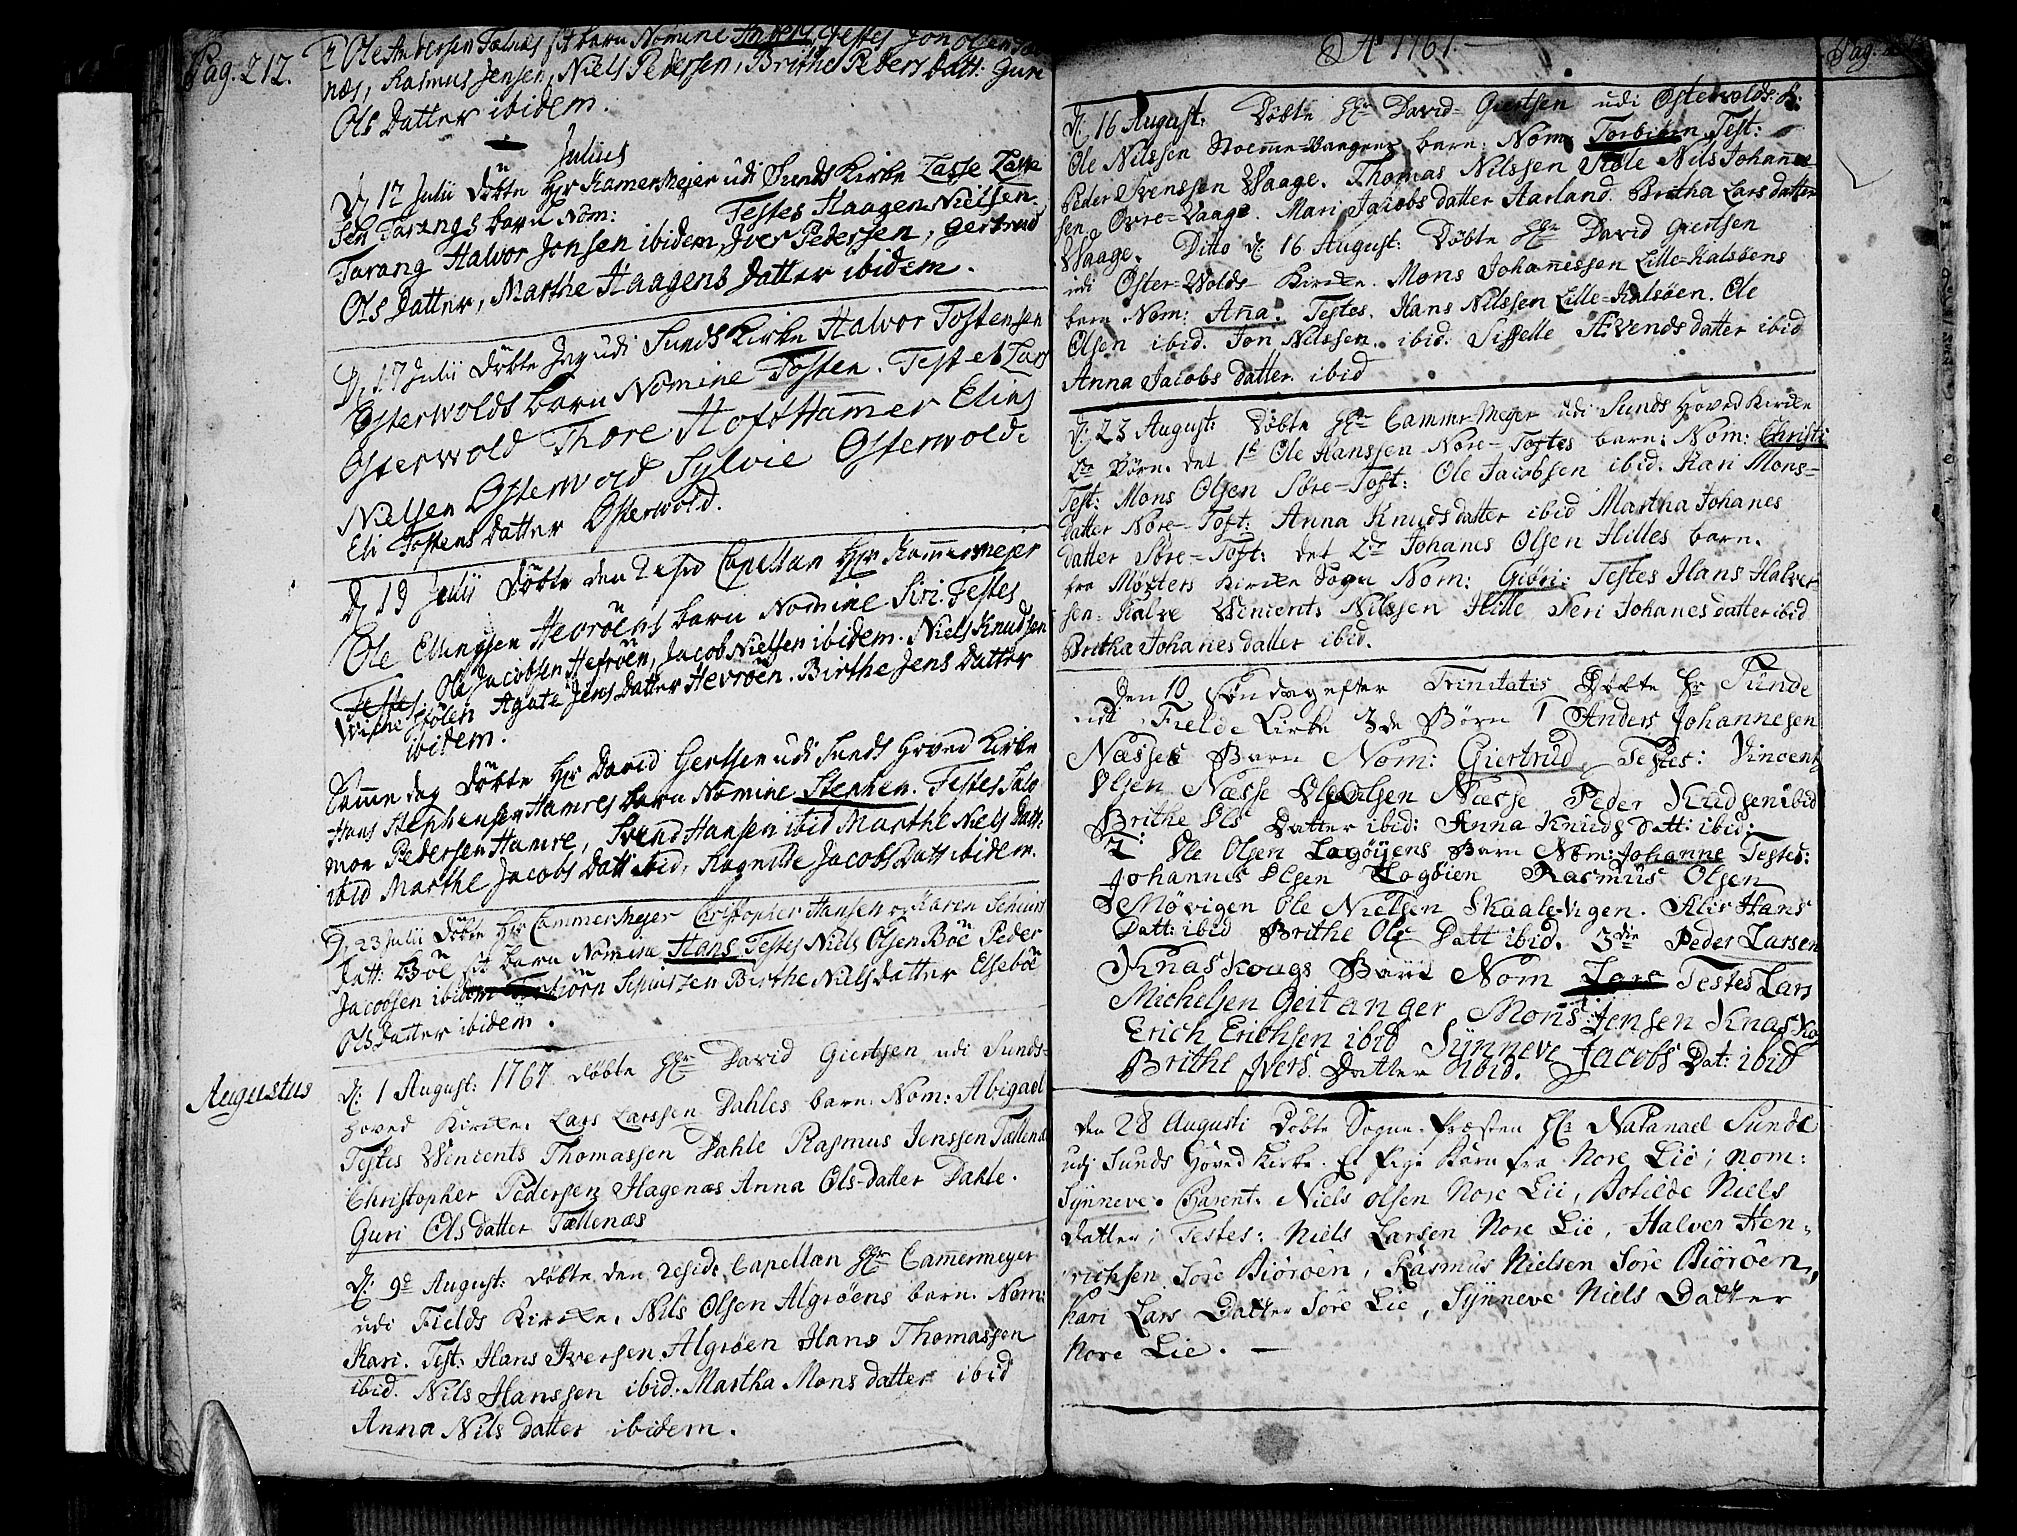 Pag. 212.
Ole Andersen Tælnæs sit barn Nomine Anders Testes Jon Olsen
næs, Rasmus Jensen, Niels Pedersen, Brithe Peders Datt: Guri
Ols Datter ibidem.
Julius
D. 12 Julii Döbte Hr Kamermejer udi Sunds Kirke Lasse Lasse
sen Tarangs barn Nom: Testes Haagen Nielsen
Tarang Halvor Jonsen ibidem, Iver Pedersen, Gertrud
Ols Datter, Marthe Haagens Datter ibidem.
D. 17 Julii Döbte Jeg udi Sunds Kirke Halvor Tostensen
Osterwolds barn Nomine Tosten. Test-et Lars
Osterwold Thore Hofs Hammer Elias
Nielsen Osterwold Sylvie Osterwold
Eli Tostens Datter Osterwold.
D. 19 Julii Döbte den Resid Capellan Hr Kammermejer
Ole Ellingsen Hevröens barn Nomine Siri. Testes
Testes Ole Jacobsen Hefröen, Jacob Nielsen ibidem. Niels Knudsen
Agate Jens Datter Hevröen. Birthe Jens Datter
ibidem.
Samme dag Döbte Hr David Gertsen udi Sunds Hoved Kirke
Hans Stephensen Hamres barn Nomine Stephen. Testes Salo
mon Pedersen Hamre, Svend Hansen ibid Marthe Niels Datt:
ibid Marthe Jacobs Datt ibid, Ragnilde Jacobs Datt ibidem.
D. 23 Julii Döbte Hr Cammermejer Christopher Hansen og Karen
Datt: Böe sit barn Nomine Hans Testes Niels Olsen Böe Peder
Jacobsen ibidem Birthe Niels Datter Elseböe
Ols Datter ibidem.
Augustus
D: 1 August: 1767 Döbte Hr David Giertsen udi Sunds-
Hoved Kirke. Lars Larssen Dahles barn. Nom: Abigael
Testes Wincents Thomassen Dahle Rasmus Jenssen Tællenæs
Christopher Pedersen Hagenæs Anna Ols-datter Dahle.
Guri Ols datter Tællenæs
D: 9de August: Döbte den Resid. Capellan Hr Camermeyer
udi Fields Kirke. Nils Olsen Algröens barn. Nom:
Kari. Test: Hans Iversen Algröen Hans Thomassen
ibid. Nils Hanssen ibid. Martha Mons datter ibid
Anna Nils datter ibidem.
Ao 1767
Pag.
D. 16 August: Döbte Hr David Giertsen udi Osterwolds: K:
Ole Nilssen barn: Nom: Torbiörn Test:
Peder Svenssen Waage. Thomas Nilssen Nils Johannes
sen Övre-Vaage. Mari Jacobs datter Aarland. Britha Lars datter
Waage. Ditto d. 16 August: Döbte Hr David Giertsen
udi Öster-Wolds Kirke. Mons Johanissen Lille-Kalsöens
barn Nom: Aña. Testes. Hans Nilssen Lille-Kalsöen. Ole
Olsen ibid. Jon Nilssen. ibid. Sisselle Ævends datter ibid
Anna Jacobs datter ibid
D: 23 August: Döbte Hr Cammermejer udi Sunds Hoved Kirke
2de Börn. det 1st Ole Hanssen Nore-Tostes barn: Nom: Christi
Test: Mons Olsen Söre-Toft: Ole Jacobsen ibid. Kari Mons-
datter Nore-Toft: Anna Knuds datter ibid Martha Johanes
datter Söre-Toft: det 2de Johanes Olsen Hilles barn.
fra Mösters Kirke Sogn Nom: Giöri: Testes Hans Halver
sen. Wincents Nilssen Hille Seri Johanes datter ibid
Britha Johanes datter ibid.
Den 10 Söndag efter Trinitatis Döbte Hr Sunde
udi Fielde Kirke 3de Börn 1 Anders Johannesen
Næsses Barn Nom: Giertrud, Testes: Vincentz
Olsen Næsse Ole Olsen Næsse Peder Knudsen ibid
Brithe Ols Datter ibid: Anna Knuds Datt: ibid:
2: Ole Olsen Lagöyens Barn Nom: Johanne Testes:
Johannes Olsen Lagöien Rasmus Olsen
Mövigen Ole Nielsen Skaale-Vigen. Alis Hans
Datt: ibid Brithe Ols Datt ibid. 3die Peder Larsen
Knaskougs Barn Nom Lars Testes Lars
Michelsen Geitanger Mons Jensen Knaskog
Erich Erichsen ibid Synneve Jacobs Dat: ibid
Brithe Ivers Datter ibid.
den 28 Augusti Döbte Sogne-Præsten Hr Natanael Sunde
udi Sunds Hoved Kirke. Et Pige Barn fra Nore Lie; Nom:
Synneve. Parent: Niels Olsen Nore Lie, Botilde Niels
Datter; Testes: Niels Larsen Nore Lie, Halver Hen-
richsen Söre Biöröen, Rasmus Nielsen Söre Biöröen,
Kari Lars Datter Söre Lie, Synneve Niels Datter
Nore Lie.